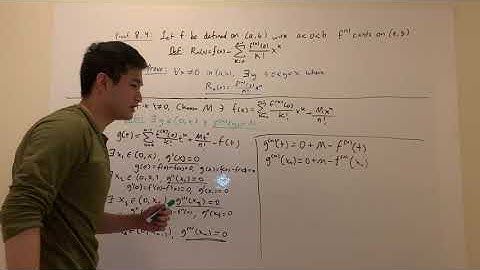 Proof 8.4: Let f be defined on (a,b) with a<0<b f⁽ⁿ⁾ conts on (a,b)
Def: Rₙ(x)=f(x)-∑ₖ₌₀ⁿ⁻¹ f⁽ᵏ⁾(0)/k! xᵏ
Prove: ∀x≠0 in (a,b), ∃y 0<y<x where
Rₙ(x)= f⁽ⁿ⁾(y)/n! xⁿ
x≠0, Choose M ∋ f(x)=∑ₖ₌₀ⁿ⁻¹ f⁽ᵏ⁾(0)/k! xᵏ + Mxⁿ/n!
g(t)=∑ₖ₌₀ⁿ⁻¹ f⁽ᵏ⁾(0)/k! tᵏ + Mtⁿ/n! - f(t)
∃ x₁∈(0,x), g'(x₁)=0
g(0)=f(0)-f(0)=0, g(x)=f(x)-f(x)=0
∃ x₂∈(0,x₁), g''(x₂)=0
g'(0)=f'(0)-f'(0)=0, g'(x₁)=0
∃ x₃∈(0,x₂) g'''(x₃)=0
g⁽ⁿ⁾(xₙ)=0
g⁽ⁿ⁾(t)=0+M-f⁽ⁿ⁾(t)
g⁽ⁿ⁾(xₙ)=0+M-f⁽ⁿ⁾(xₙ)